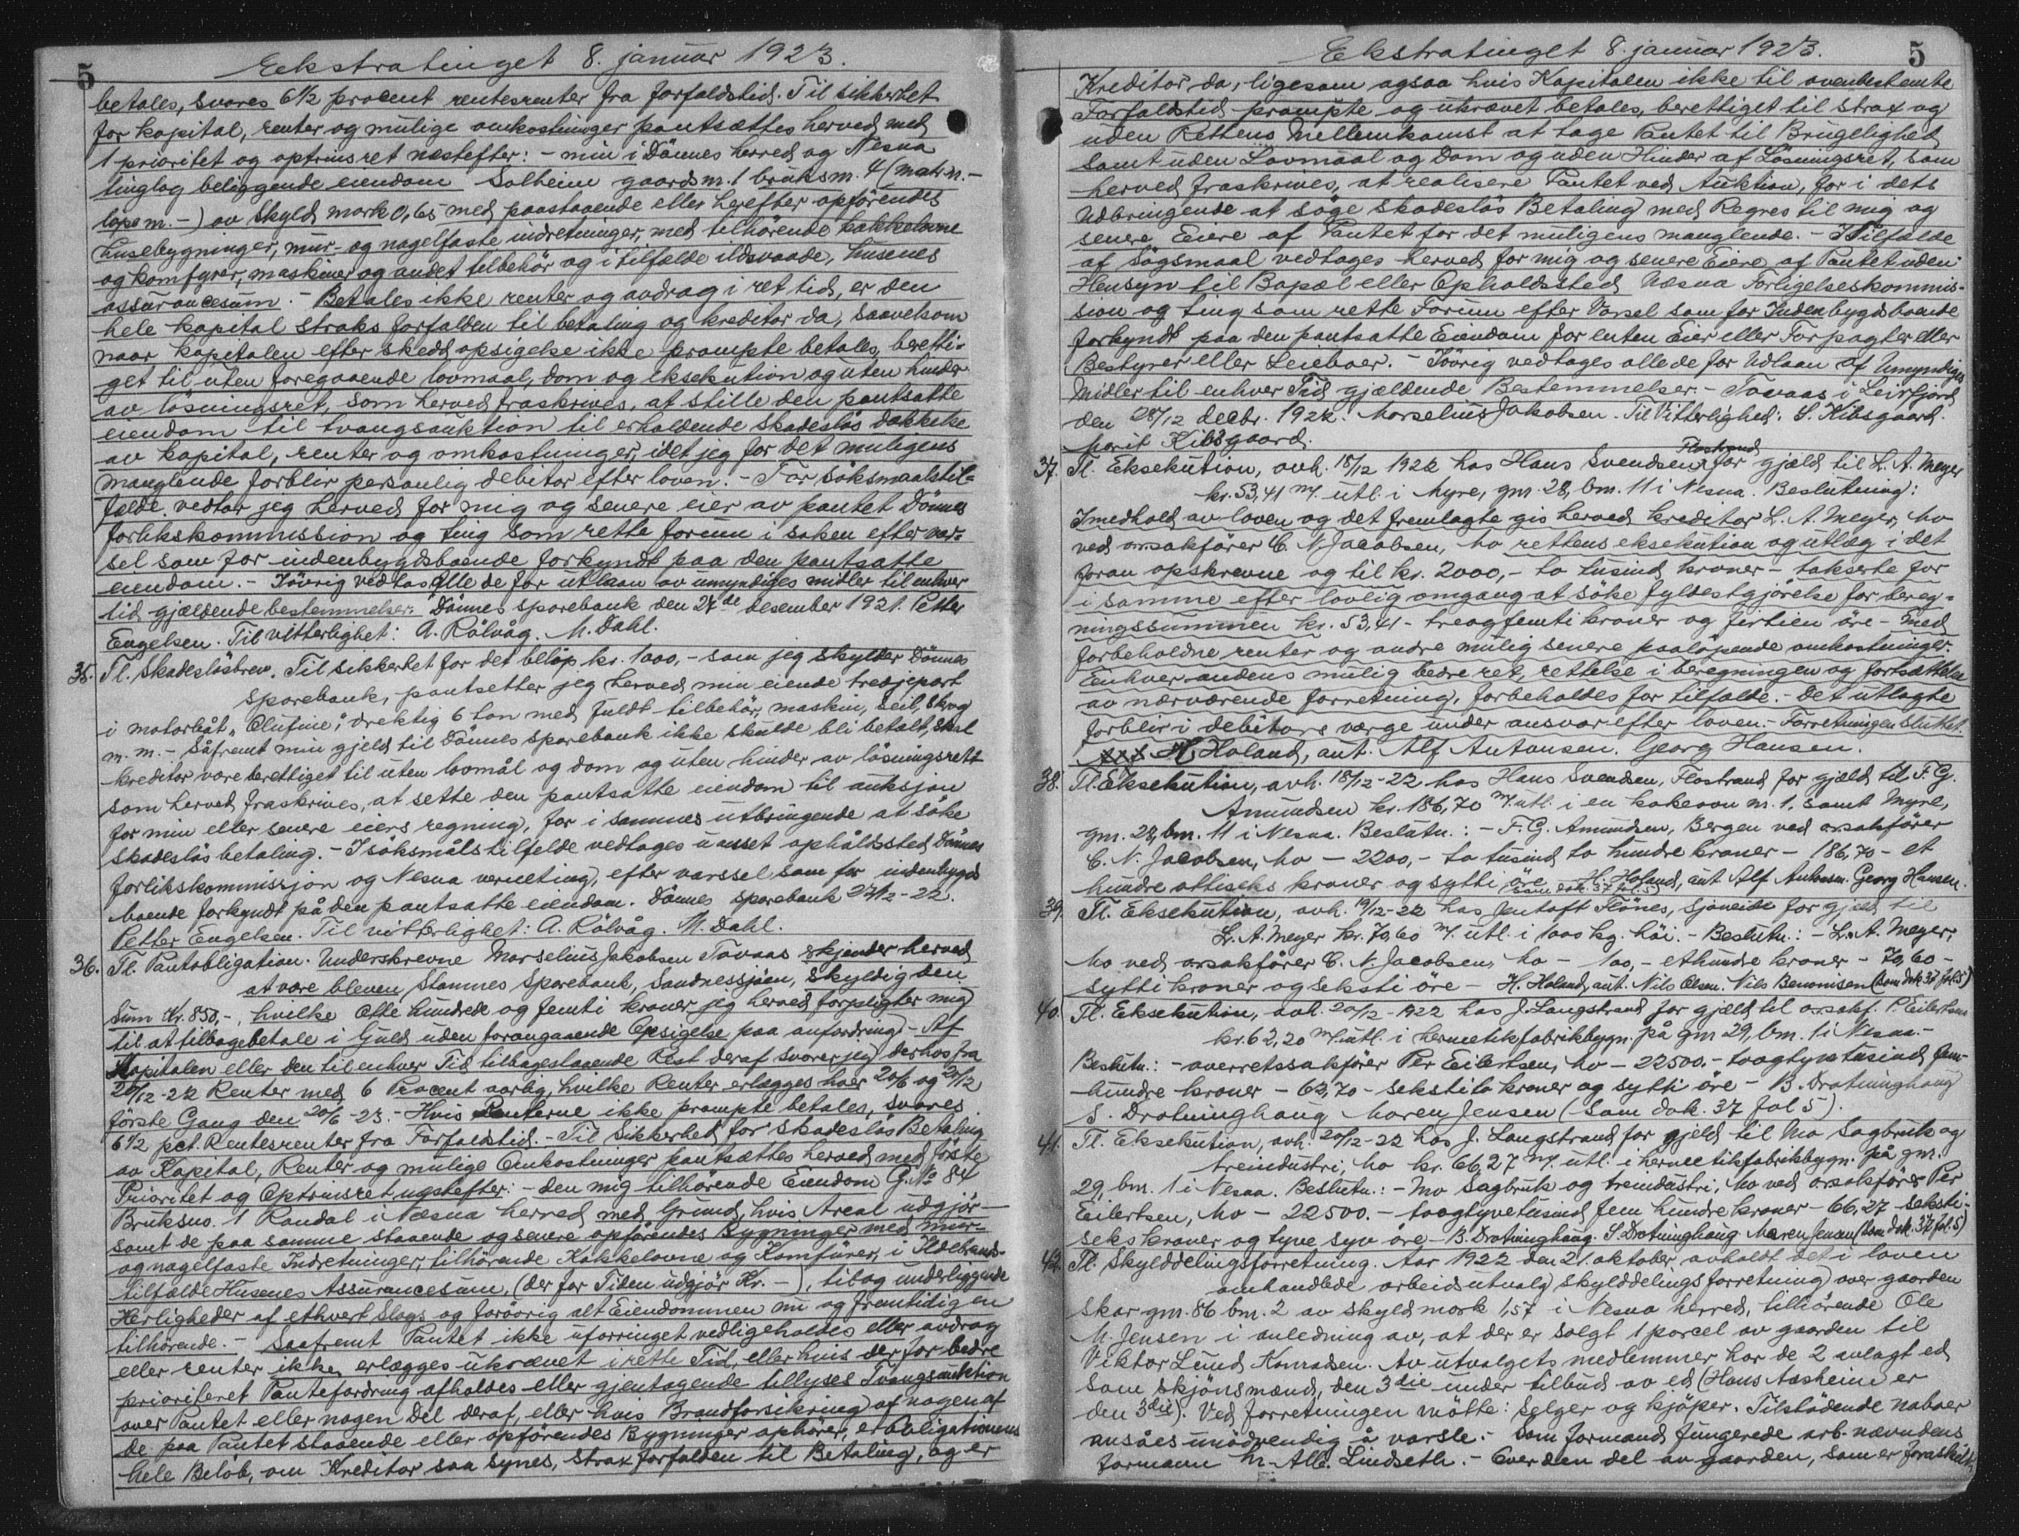 5
Ekstratinget 8. januar 1923.
betales, svares 6½ procent rentesrenter fra forfaldstid. Til sikkerhet
for kapital, renter og mulige omkostninger pantsættes herved med
1 prioritet og optrinsret næstefter: - min i Dönnes herred og Nesna
tinglag beliggende eiendom Solheim gaardsnr. 1 bruksnr. 4 (matr.nr. -
löpenr. -) av skyld mark 0,65 med paastaaende eller herefter opförendes
husebygninger, mur- og nagelfaste indretninger, med tilhörende kakkelovne
og komfyrer, maskiner og andet tilbehör og i tilfælde ildsvaade, husenes
assurancesum. - Betales ikke renter og avdrag i ret tid, er den
hele kapital straks forfalden til betaling og kreditor da, saavelsom
naar kapitalen efter skedd opsigelse ikke prompte betales, beretti-
get til uten foregaaende lovmaal, dom og eksekution og uten hinder
av lösningsret, som herved fraskrives, at stille den pantsatte
eiendom til tvangsauktion til erholdende skadeslös dækkelse
av kapital, renter og omkostninger, idet jeg for det muligens
manglende forblir personlig debitor efter loven. - For söksmaalstil-
fælde vedtar jeg herved for mig og senere eier av pantet Dönnes
forlikskommission og ting som rette forum i saken efter var-
sel som for indenbygdsboende forkyndt paa den pantsatte
eiendom. - Iövrig vedtas alle de for utlaan av umyndiges midler til enhver
tid gjældende bestemmelser. Dönnes sparebank den 27de desember 1921. Petter
Engelsen. Til vitterlighet: A. Rölvåg. M. Dahl.
35. Tl. Skadeslösbrev. Til sikkerhet for det belöp kr. 1000,- som jeg skylder Dönnes
sparebank, pantsetter jeg herved min eiende tredjepart
i motorbåt "Olufine", drektig 6 ton med fuldt tilbehör, maskin, seil,
m. m. - Såfremt min gjeld til Dönnes sparebank ikke skulde bli betalt, skal
kreditor være berettiget til uten lovmål og dom og uten hinder av lösningsrett
som herved fraskrives, at sette den pantsatte eiendom til auksjon
for min eller senere eiers regning, for i sammes utbringende at söke
skadeslös betaling. - I söksmålstilfelde vedtages uanset opholdssted Dönnes
forlikskommissjon og Nesna verneting, efter varssel som for indenbygds
boende forkyndt på den pantsatte eiendom. Dönnes sparebank 27/12-22.
Petter Engelsen. Til vitterlighet: A. Rölvåg. M. Dahl.
36. Tl. Pantobligation. Underskrevne Marselius Jakobsen Tovaas erkjender herved
at være bleven Stamnes Sparebank, Sandnessjöen, skyldig den
Sum Kr. 850,-, hvilke Otte hundrede og femti kroner jeg herved forpligter mig
til at tilbagebetale i Guld uden foregaaende Opsigelse paa anfordring. - Af
Kapitalen eller den til enhver Tid tilbagestaaende Rest deraf svarer jeg derhos fra
20/12-22 Renter med 6 Procent aarlig, hvilke Renter erlægges hver 20/6 og 20/12
förste Gang den 20/6-23. - Hvis Renterne ikke prompte betales, svares
6½ pct. Rentesrenter fra Forfaldstid. - Til Sikkerhed for skadeslös Betaling
av Kapital, Renter og mulige Omkostninger pantsættes herved med förste
Prioritet og Optrinsret næstefter: - den mig tilhörende Eiendom G. No 84
Bruksno. 1 Randal i Næsna herred med Grund, hvis Areal udgjör -
samt de paa samme staaende og senere opförendes Bygninger med mur-
og nagelfaste Indretninger, tilhörende Kakkelovne og Komfürer, i Ildebrands-
tilfælde Husenes Assurancesum, (der for Tiden udgjör Kr. -), til og underliggende
Herligheder af ethvert Slags og forövrig alt Eiendommen nu og fremtidig en
tilhörende. - Saafremt Pantet ikke uforringet vedligeholdes eller avdrag
eller renter ikke erlægges ukrævet i rette Tid, eller hvis der for bedre
prioriteret Pantefordring afholdes eller gjentagende tillyses Tvangsauktion
over Pantet eller nogen Del deraf, eller hvis Brandforsikring af nogen af
de paa Pantet staaende eller opförendes Bygninger ophörer, er Obligationens
hele Belöb, om Kreditor saa synes, strax forfalden til Betaling, og er
Ekstratinget 8. januar 1923.
5
Kreditor da, ligesom ogsaa hvis Kapitalen ikke til ovenbestemte
Forfaldstid prompte og ukrævet betales, berettiget til strax og
uden Rettens Mellemkomst at tage Pantet til Brugelighed
samt uden Lovmaal og Dom og uden Hinder af Lösningsret, som
herved fraskrives, at realisere Pantet ved Auktion, for i dets
Udbringende at söge skadeslös Betaling med Regres til mig og
senere Eiere af Pantet for det muligens manglende. - I Tilfælde
af Sögsmaal vedtages herved for mig og senere Eiere af Pantet uden
Hensyn til Bopæl eller Opholdssted Næsna Forligelseskommis-
sion og ting som rette Forum efter Varsel som for Indenbygdsboende
forkyndt paa den pantsatte Eiendom for enten Eier eller Forpagter eller
Bestyrer eller Leieboer. - Iövrig vedtages alle de for Udlaan af Umyndiges
Midler til enhver Tid gjældende Bestemmelser. - Tovaas i Leirfjord
den 28/12 decbr. 1922. Marselius Jakobsen. Til Vitterlighed: S. Kibsgaard.
Kibsgaard.
37. Tl. Eksekution, avh. 18/12 1922 hos Hans Svendsen, Flostrand for gjæld til L. A. Meyer
kr. 53,41 m/. utl. i Myre, gnr. 28, bnr. 11 i Nesna. Beslutning:
I medhold av loven og det fremlagte gis herved kreditor L. A. Meyer, Mo
ved orsakförer C. N. Jacobsen, Mo rettens eksekution og utlæg i det
foran opskrevne og til kr. 2000,- to tusind kroner - takserte for
i samme efter lovlig omgang at söke fyldestgjörelse for bereg-
ningssummen kr. 53,41 - treogfemti kroner og förtien öre - med
forbeholdne renter og andre mulig senere paalöpende omkostninger.
Enhver andens mulig bedre ret, rettelse i beregningen og fortsættelse
av nærværende forretning, forbeholdes for tilfælde. - Det utlagte
forblir i debitors værge under ansvar efter loven. - Forretningen sluttet.
H. Holand, aut. Alf Antonsen. Georg Hansen.
38. Tl. Eksekution, avh. 18/12-22 hos Hans Svendsen, Flostrand for gjæld til F. G.
Amundsen kr. 186,70 m/. utl. i en kakeovn nr. 1, samt Myre,
gnr. 28, bnr. 11 i Nesna. Beslutn.: - F. G. Amundsen, Bergen ved orsakförer
C. N. Jacobsen, Mo - 2200,- to tusind to hundre kroner - 186,70 - et
hundre ottiseks kroner og sytti öre - H. Holand, aut. Alf Antonsen. Georg Hansen.
(som dok. 37 fol. 5)
39. Tl. Eksekution, avh. 19/12-22 hos Jentoft Flönes, Sjöneide for gjæld til
L. A. Meyer kr. 70,60 m/. utl. i 1000 kg. höi. - Beslutn.: - L. A. Meyer,
Mo ved orsakförer C. N. Jacobsen, Mo - 100,- ethundre kroner - 70,60 -
sytti kroner og seksti öre - H. Holand, aut. Nils Olsen. Nils Benonisen (som dok 37 fol 5)
40. Tl. Eksekution, avh. 20/12-1922 hos J. Langstrand for gjæld til orsakf. P. Eilertsen
kr. 62,20 m/. utl. i hermetikfabrikbygn. på gnr 29, bnr. 1 i Nesna. -
Beslutn.: - overretssakförer Per Eilertsen, Mo - 22500.- toogtyvetusind fem-
hundre kroner - 62,70 - sekstito kroner og sytti öre - B. Drotninghaug
S. Drotninghaug Maren Jensen (som dok. 37 fol 5).
41. Tl. Eksekution, avh. 20/12-22 hos J. Langstrand for gjeld til Mo Sagbruk og
treindustri, Mo kr. 66,27 m/. utl. i hermetikfabrikbygn. på gnr.
29, bnr. 1 i Nesna. Beslutn.: - Mo Sagbruk og treindustri, Mo ved orsakförer Per
Eilertsen, Mo - 22500.- toogtyvetusind fem hundre kroner - 66,27 - seksti-
seks kroner og tyve syv öre - B. Drotninghaug. S. Drotninghaug Maren Jensen (som dok. 37 fol 5)
42. Tl. Skylddelingsforretning. Aar 1922 den 21. oktober avholdt det i loven
omhandlede arbeidsutvalg skylddelingsforretning over gaarden
Skar gnr. 86 bnr. 2 av skyld mark 1,57 i Nesna herred, tilhörende Ole
M. Jensen i anledning av, at der er solgt 1 parcel av gaarden til
Viktor Lund Konradsen. Av utvalgets medlemmer har de 2 avlagt ed
som skjönsmænd, den 3die under tilbud av ed (Hans Aasheim er
den 3die). Ved forretningen mötte: Selger og kjöper. Tilstödende naboer
ansåes unödvendig å varsle. - Som formand fungerede arb.nævndens
formann M. Alb. Lindseth. - Over den del av gaarden, som er fraskilt,